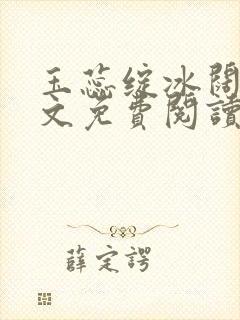 玉蕊綻冰闊
文免費閱讀
薛定諤